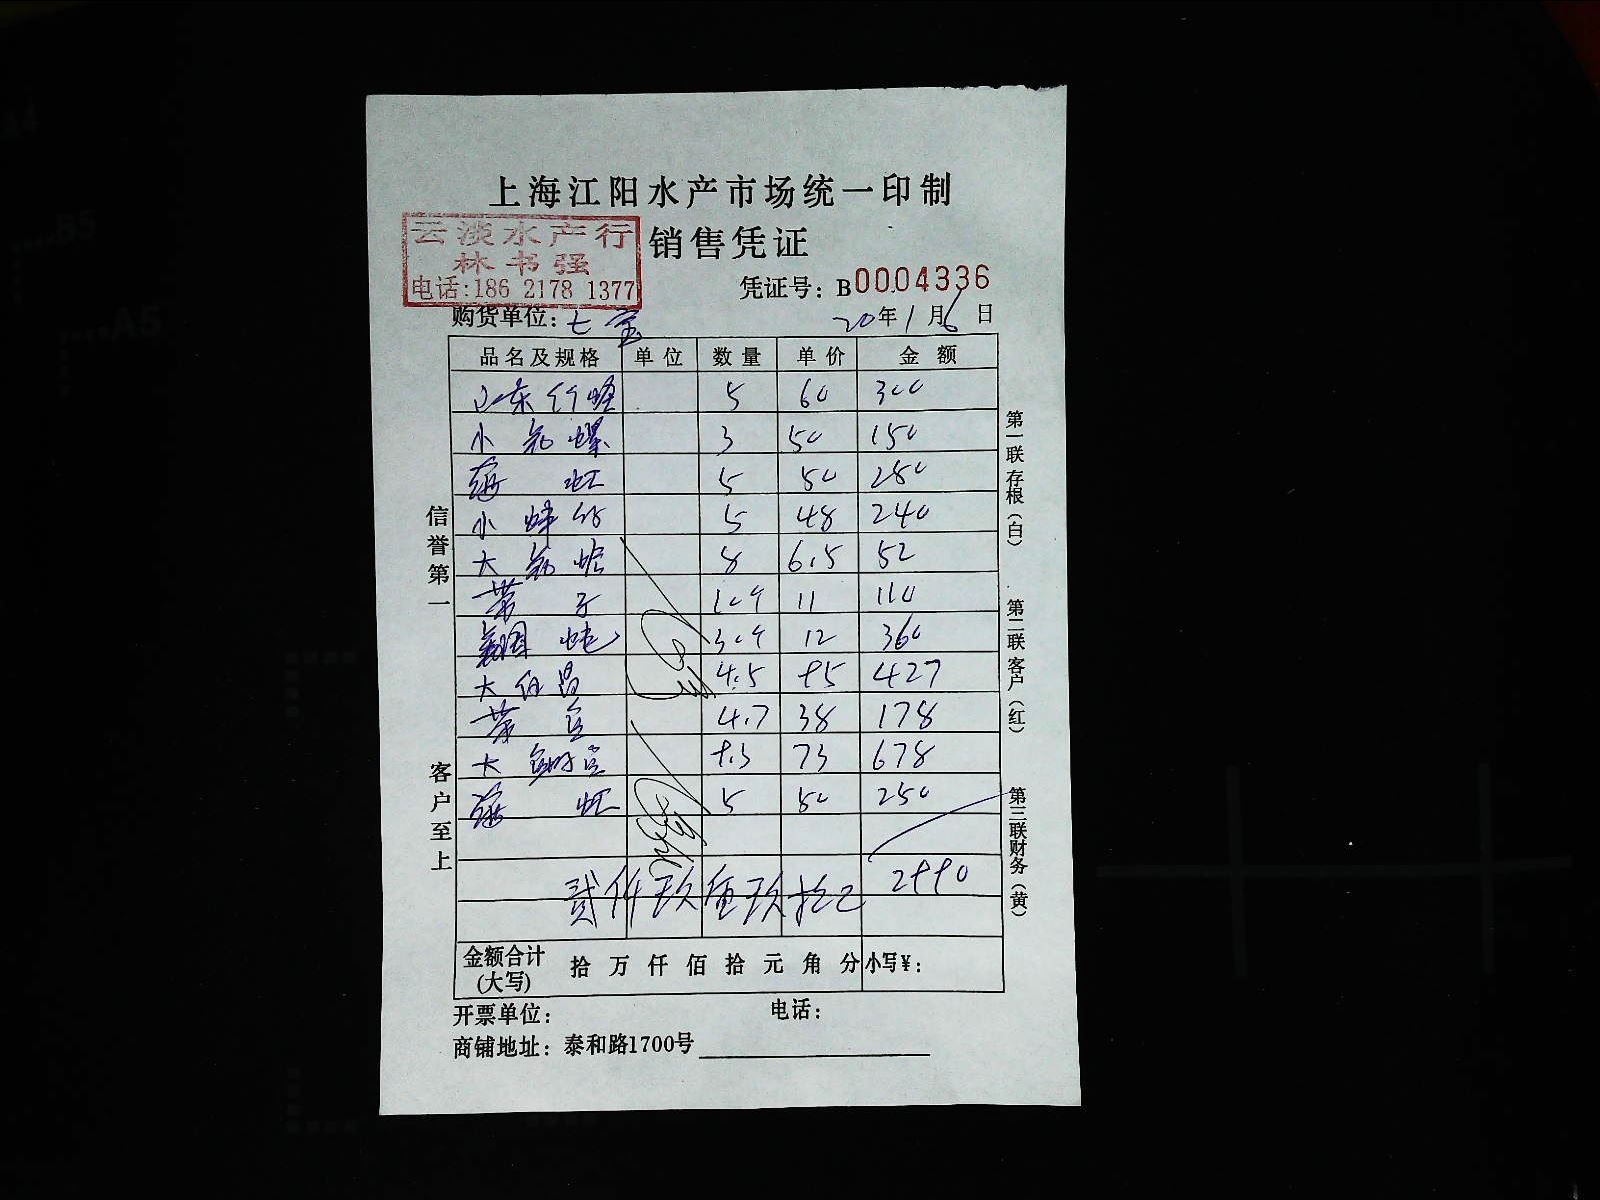 上海江阳水产市场统一印制
云淡水产行
林书强
电话:186 2178 1377
销售凭证
凭证号：B0004336
购货单位：七宝
20年1月6日
品名及规格 单位 数量 单价 金额
山东竹蛏 5 60 300
小 螺 3 50 150
海虹 5 50 250
小 5 48 240
大 8 6.5 52
带子 10个 11 110
30个 12 360
大 4.5 95 427
4.7 38 178
大 9.3 73 678
海虹 5 50 250
2990
贰仟玖佰玖拾元
金额合计(大写) 拾万仟佰拾元角分 小写¥：
开票单位： 电话：
商铺地址：泰和路1700号
信誉第一
客户至上
第一联存根（白）
第二联客户（红）
第三联财务（黄）